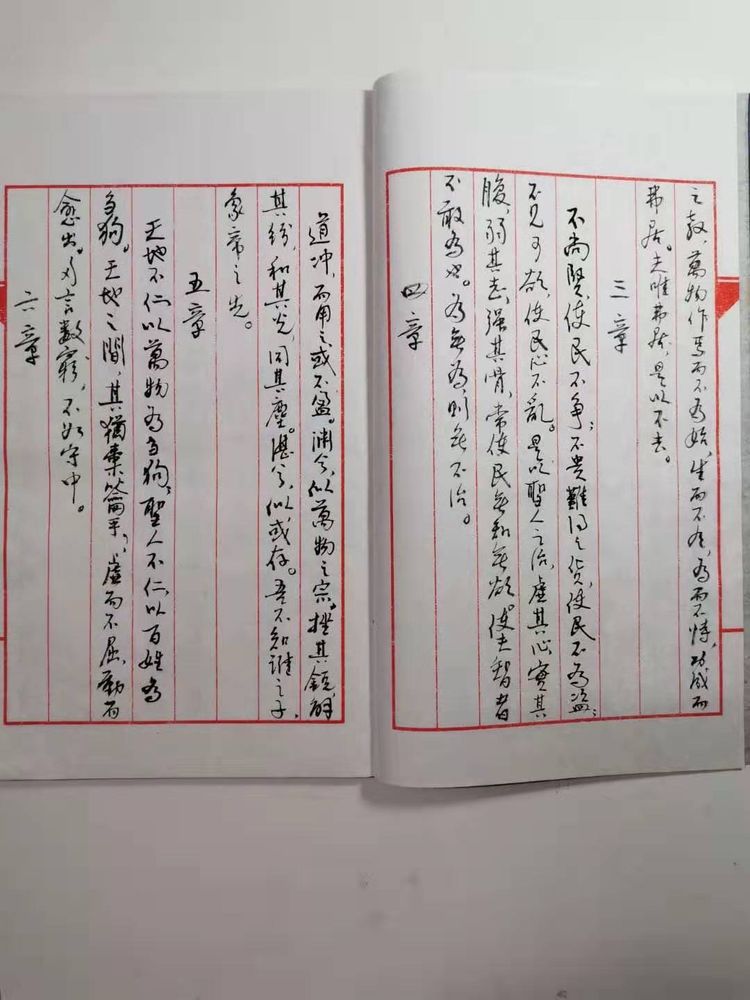 之教，萬物作焉而不為始，生而不有，為而不恃，功成而
弗居。夫唯弗居，是以不去。
三章
不尚賢，使民不争；不贵難得之货，使民不為盜；
不見可欲，使民心不亂。是以聖人之治，虚其心，實其
腹，弱其志，强其骨，常使民無知無欲。使夫智者
不敢為也。為無為，則無不治。
四章
道冲，而用之或不盈。渊兮，似萬物之宗。挫其鋭，解
其纷，和其光，同其塵。湛兮，似或存。吾不知誰之子，
象帝之先。
五章
天地不仁，以萬物為刍狗；聖人不仁，以百姓為
刍狗。天地之間，其猶橐籥乎，虚而不屈，動而
愈出。多言数窮，不如守中。
六章